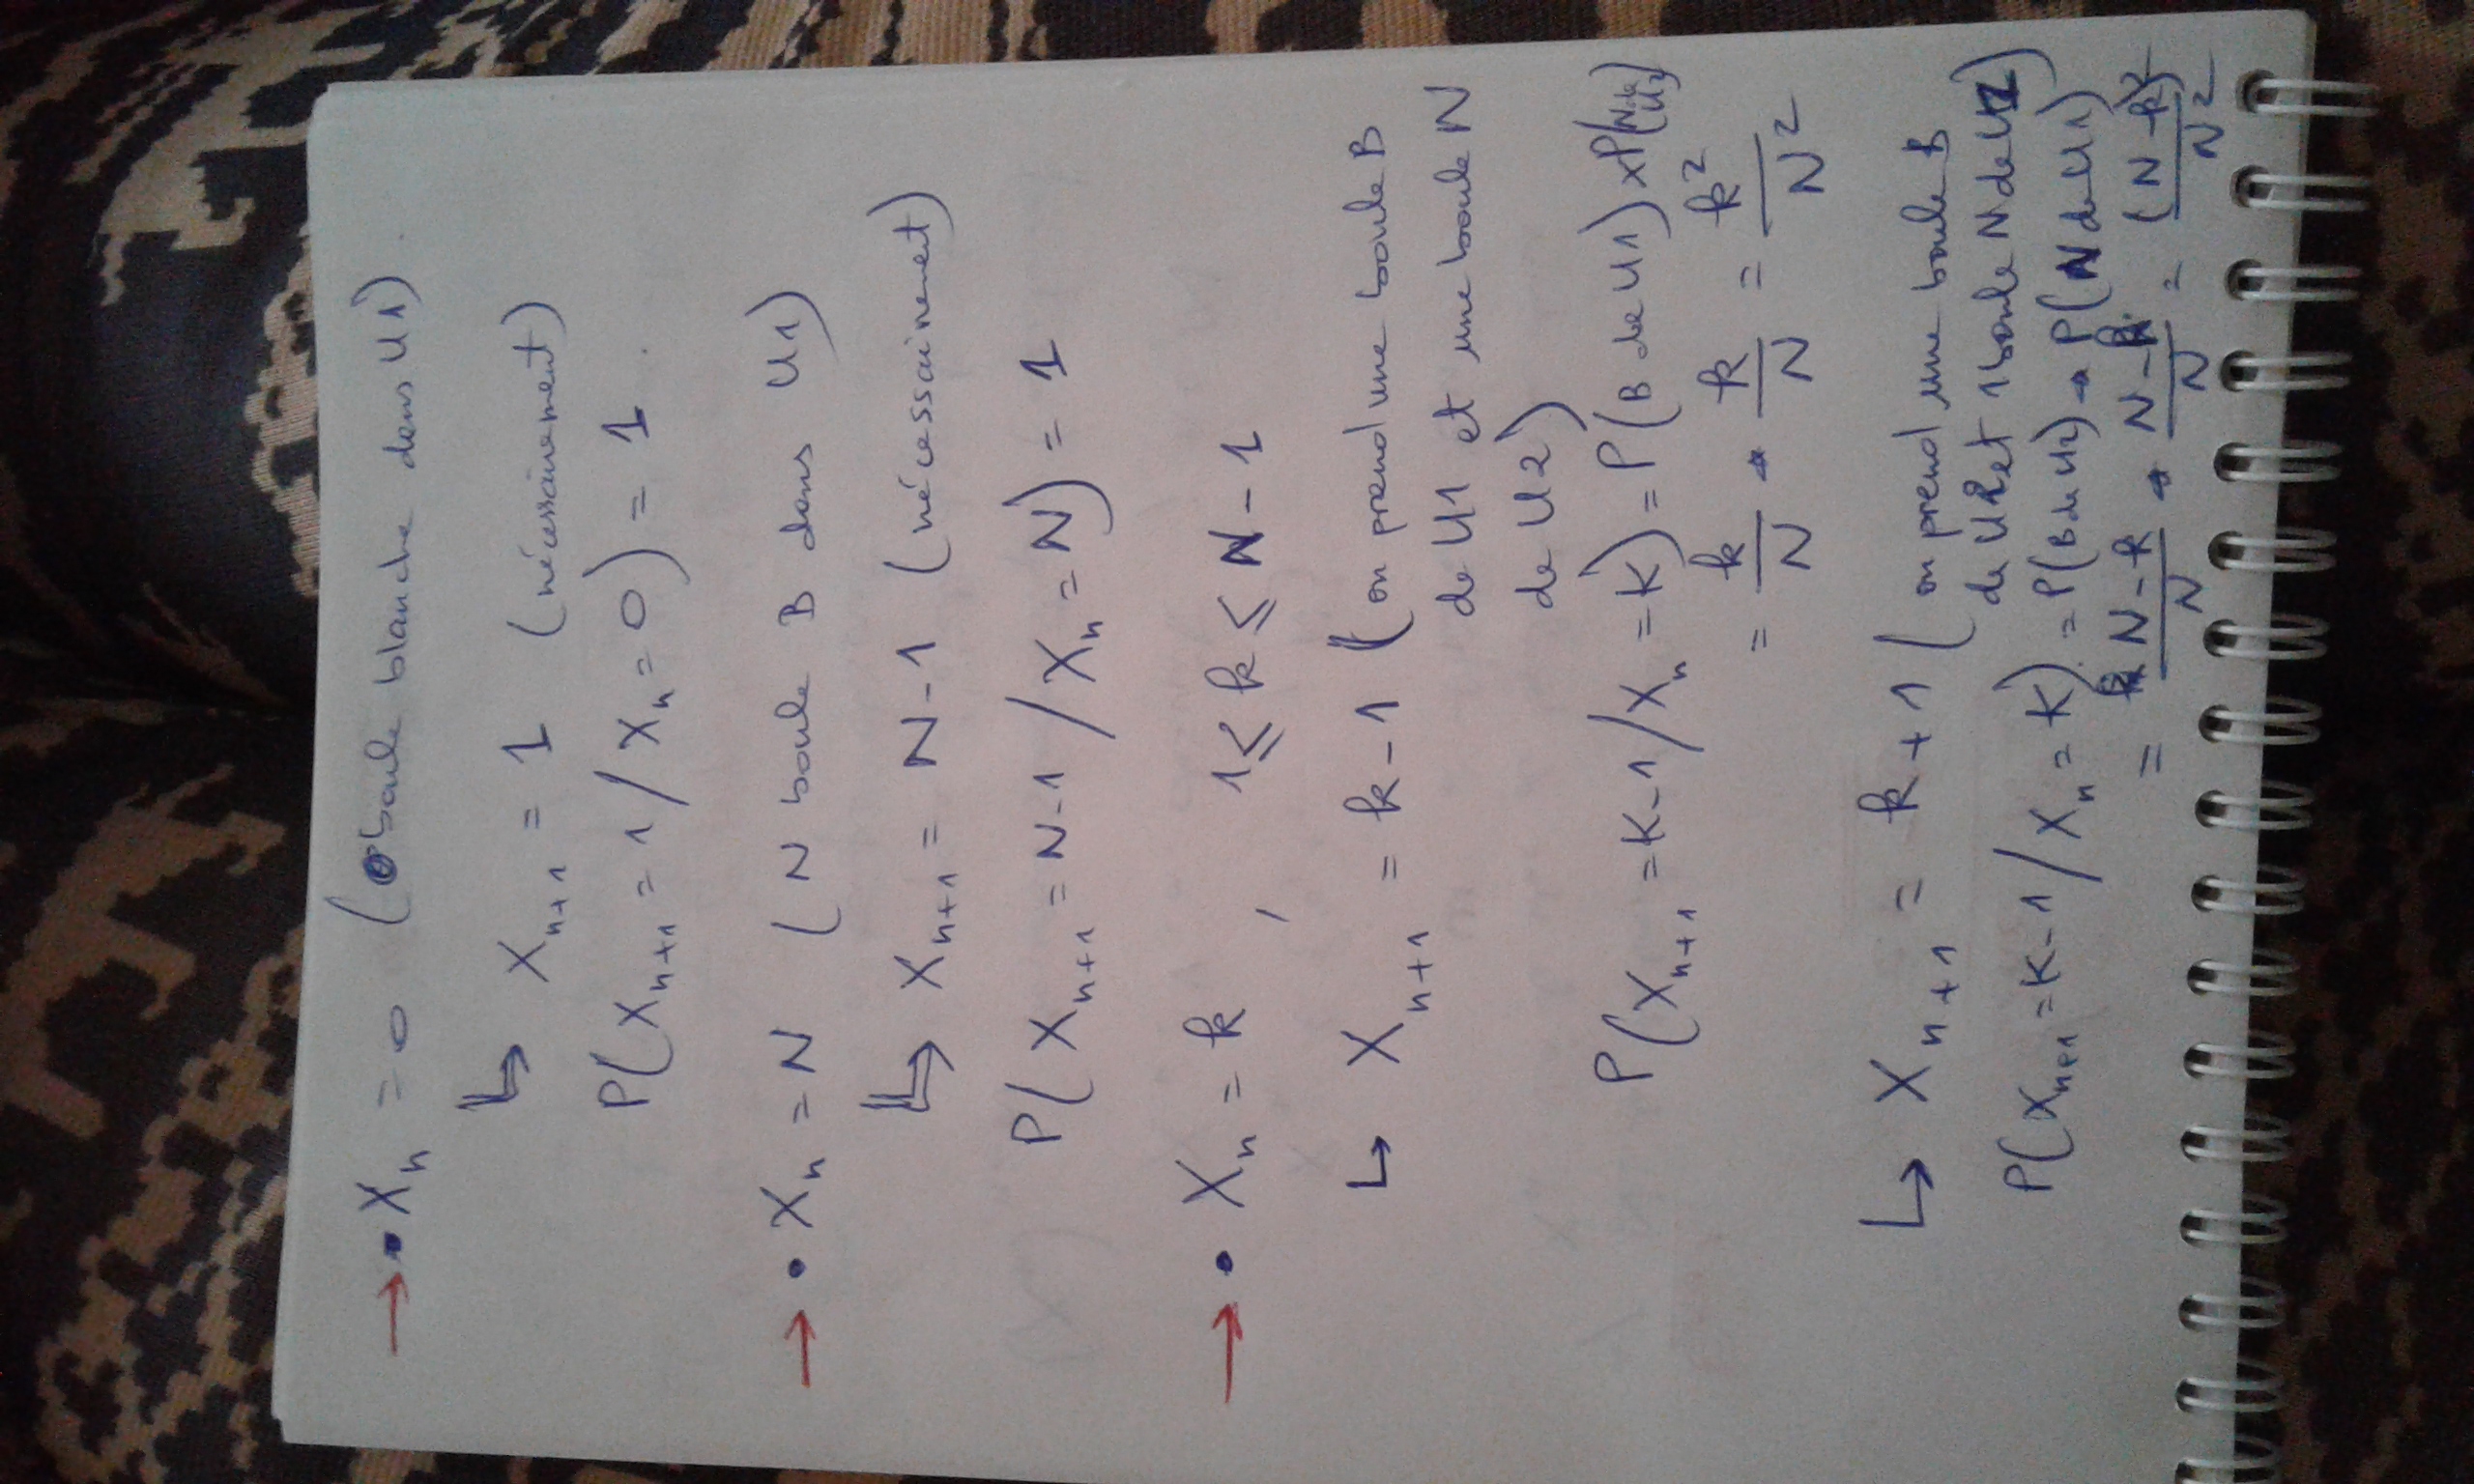 → • Xₙ = 0 (0 boule blanche dans U1).
↳ Xₙ₊₁ = 1 (nécessairement)
P(Xₙ₊₁ = 1 / Xₙ = 0) = 1.
→ • Xₙ = N (N boule B dans U1)
↳ Xₙ₊₁ = N-1 (nécessairement)
P(Xₙ₊₁ = N-1 / Xₙ = N) = 1
→ • Xₙ = k, 1 ⩽ k ⩽ N-1
↳ Xₙ₊₁ = k-1 (on prend une boule B
de U1 et une boule N
de U2)
P(Xₙ₊₁ = K-1 / Xₙ = K) = P(B de U1) × P(N de U2)
= k/N · k/N = k²/N²
↳ Xₙ₊₁ = k+1 (on prend une boule B
de U2 et 1 boule N de U1)
P(Xₙ₊₁ = K-1 / Xₙ = K). = P(B de U2) · P(N de U1)
= N-k/N · N-k/N = (N-k)²/N²